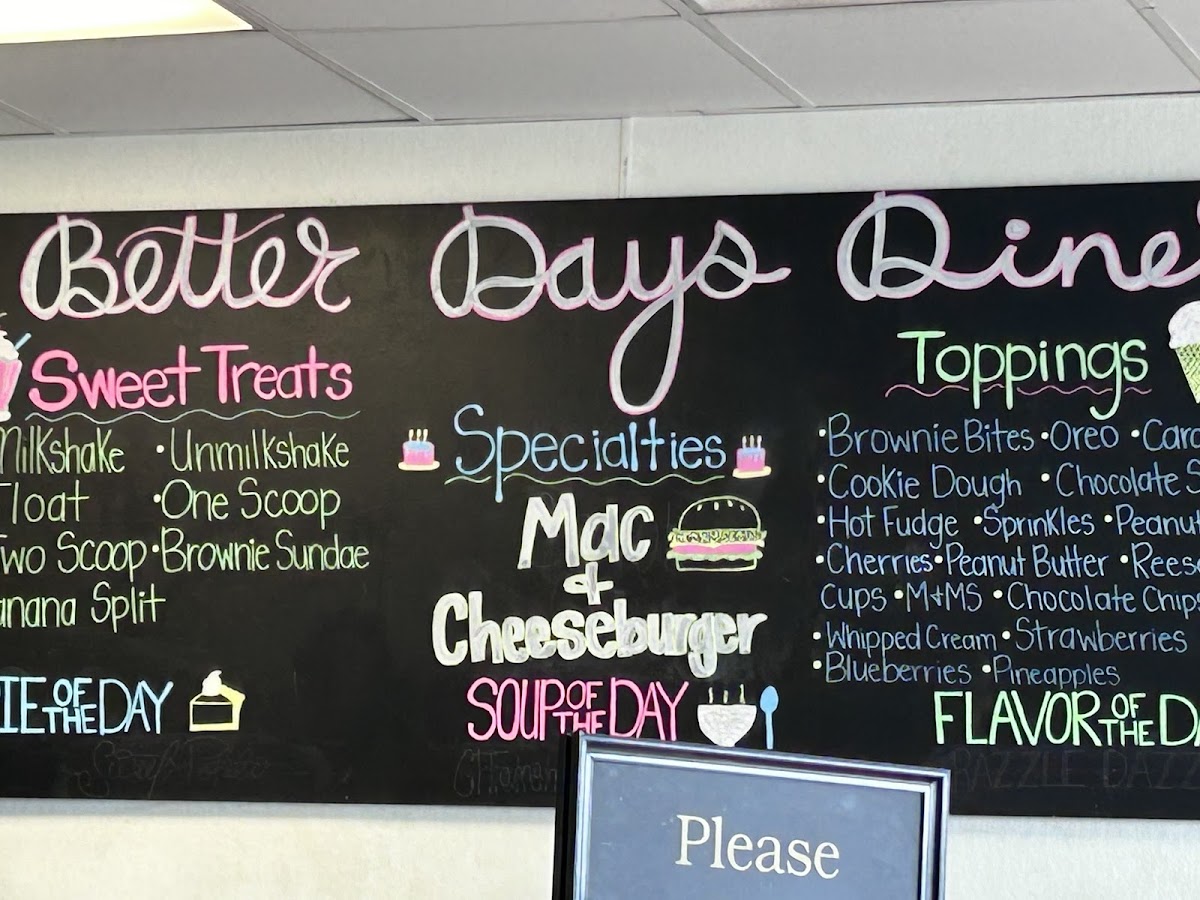 Better Days Dine
Sweet Treats
Milkshake •Unmilkshake
Float •One Scoop
Two Scoop •Brownie Sundae
anana Split
IE OF THE DAY
Specialties
Mac
+
Cheeseburger
SOUP OF THE DAY
Toppings
•Brownie Bites •Oreo •Car
•Cookie Dough •Chocolate S
•Hot Fudge •Sprinkles •Peanut
•Cherries •Peanut Butter •Rees
Cups •M+MS •Chocolate Chip
•Whipped Cream •Strawberries
•Blueberries •Pineapples
FLAVOR OF THE DA
RAZZLE DAZZ
Please